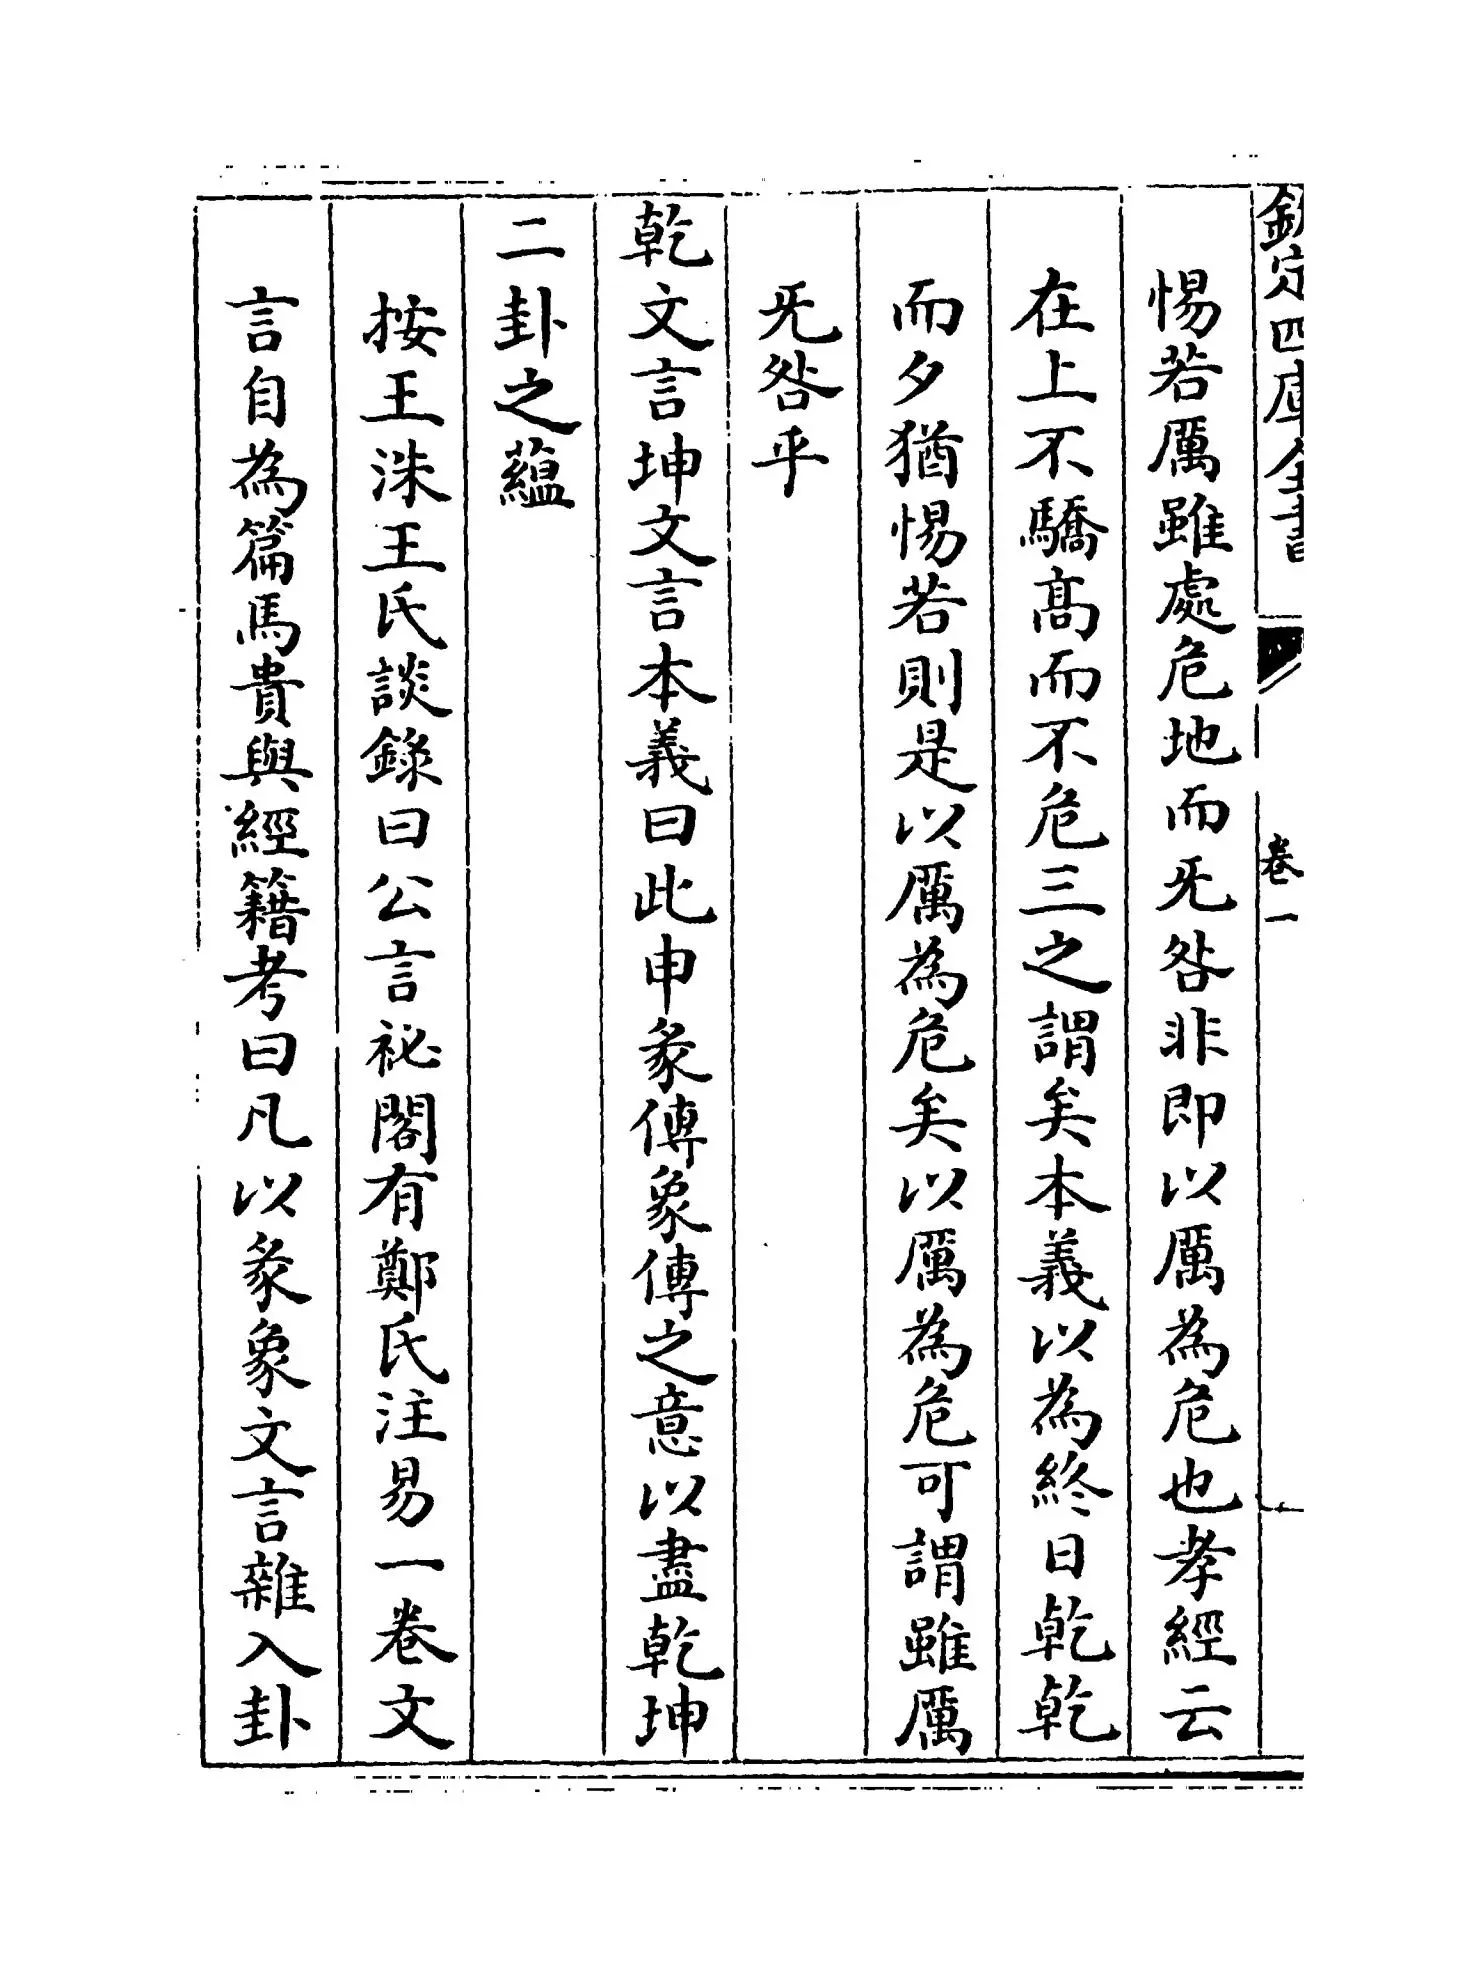 欽定四庫全書
卷一
惕若厲雖處危地而旡咎非即以厲為危也孝經云
在上不驕髙而不危三之謂矣本義以為終日乾乾
而夕猶惕若則是以厲為危矣以厲為危可謂雖厲
旡咎乎
乾文言坤文言本義曰此申彖傳象傳之意以盡乾坤
二卦之蘊
按王洙王氏談錄曰公言祕閣有鄭氏注易一卷文
言自為篇馬貴與經籍考曰凡以彖象文言雜入卦